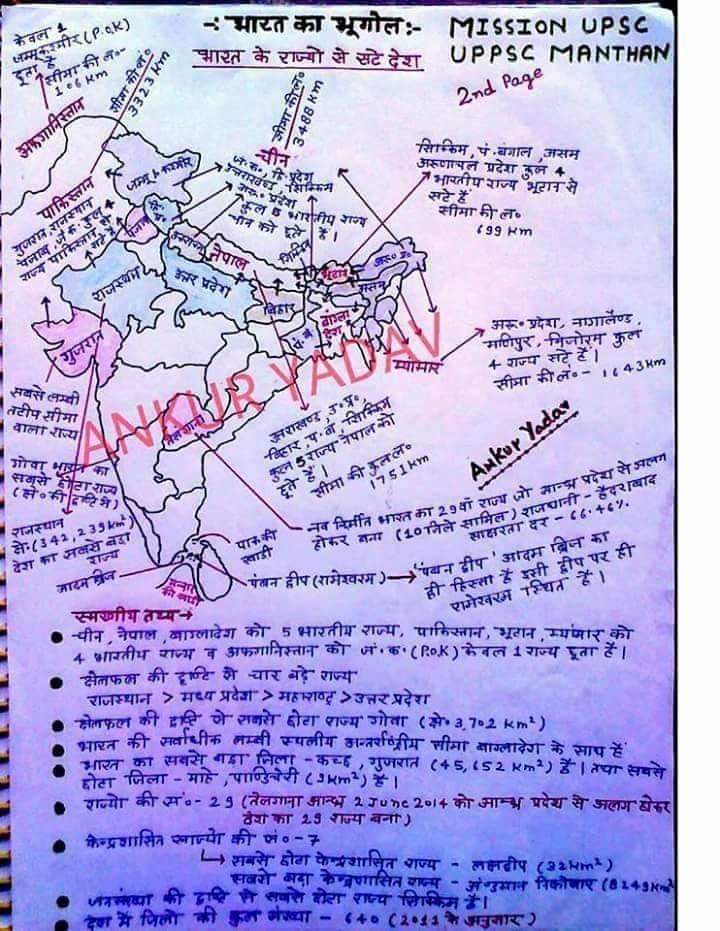 -: भारत का भूगोल:-
MISSION UPSC
UPPSC MANTHAN
भारत के राज्यों से सटे देश
2nd Page
केवल 1
जम्मू कश्मीर (P.O.K)
छूता है
सीमा की ल०-
106 Km
अफगानिस्तान
सीमा की लं०
3323 Km
सीमा की ल०
3488 Km
चीन
ज.क., हि.प्रदेश
उत्तराखण्ड, सिक्किम
अरू० प्रदेश
कुल 5 भारतीय राज्य
चीन को छूते हैं।
सिक्किम, पं. बंगाल, असम
अरूणाचल प्रदेश कुल 4
भारतीय राज्य भूटान से
सटे हैं
सीमा की ल०
699 KM
पाकिस्तान
गुजरात, राजस्थान
पंजाब, ज.क. कुल 4
राज्य पाकिस्तान से
सटे हैं
जम्मू & कश्मीर
हि० प्र०
पंजाब
उत्तराखण्ड
नेपाल
सिक्किम
भूटान
अरू० प्र०
असम
राजस्थान
उत्तर प्रदेश
बिहार
बांग्ला
देश
पं. बं.
गुजरात
म्यांमार
अरू० प्रदेश, नागालैण्ड,
मणिपुर, मिजोरम कुल
4 राज्य सटे हैं।
सीमा की लं०- 1643 KM
ANKUR YADAV
सबसे लम्बी
तटीय सीमा
वाला राज्य
तेलंगाना
उत्तराखण्ड, उ.प्र.,
बिहार, प.बं., सिक्किम
कुल 5 राज्य नेपाल को
छूते हैं।
सीमा की कुल ल०
1751 KM
Ankur Yadav
गोवा भारत का
सबसे छोटा राज्य
(क्षे० की दृष्टि से)
राजस्थान
क्षे.(342,239 km²)
देश का सबसे बड़ा
राज्य
नव निर्मीत भारत का 29वाँ राज्य जो आन्ध्र प्रदेश से अलग
होकर बना (10 जिले सामिल) राजधानी - हैदराबाद
साक्षरता दर - 66.46%.
पाक की
खाड़ी
आदम ब्रिज
मन्नार
की खाड़ी
पंबन द्वीप (रामेश्वरम)
"पंबन द्वीप" आदम ब्रिज का
ही हिस्सा है इसी द्वीप पर ही
रामेश्वरम स्थित है।
स्मरणीय तथ्य→
• चीन, नेपाल, बांग्लादेश को 5 भारतीय राज्य, पाकिस्तान, भूटान, म्यांमार को
4 भारतीय राज्य व अफगानिस्तान को जं.क.(P.O.K) केवल 1 राज्य छूता है।
• क्षेत्रफल की दृष्टि से चार बड़े राज्य
राजस्थान > मध्य प्रदेश > महाराष्ट्र > उत्तर प्रदेश
• क्षेत्रफल की दृष्टि से सबसे छोटा राज्य गोवा (क्षे० 3,702 KM²)
• भारत की सर्वाधीक लम्बी स्थलीय अन्तर्राष्ट्रीय सीमा बांग्लादेश के साथ है
• भारत का सबसे बड़ा जिला - कच्छ, गुजरात (45,652 KM²) है। तथा सबसे
छोटा जिला - माहे, पाण्डिचेरी (9KM²) है।
• राज्यो की सं०- 29 (तेलंगाना आन्ध्र 2 June 2014 को आन्ध्र प्रदेश से अलग होकर
देश का 29 राज्य बना)
• केन्द्रशासित राज्यो की सं०-7
↳ सबसे छोटा केन्द्रशासित राज्य - लक्षद्वीप (32KM²)
सबसे बड़ा केन्द्रशासित राज्य - अंण्डमान निकोबार (8249KM²
• जनसंख्या की दृष्टि से सबसे छोटा राज्य सिक्किम है।
• देश में जिलो की कुल संख्या - 640 (2011 के अनुसार)